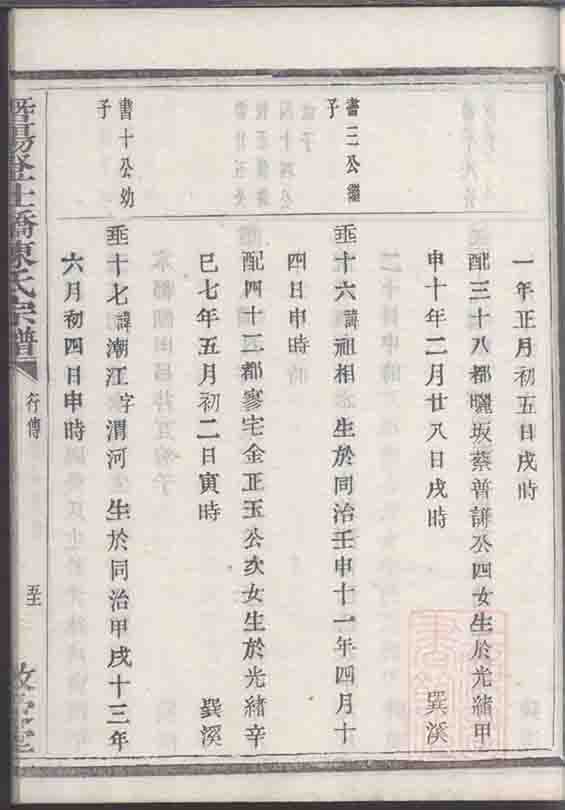 一年正月初五日戌時
配三十八都曬坂蔡普謙公四女生於光緒甲
申十年二月廿八日戌時　巽溪
書三公繼
子
垂十六諱祖相　生於同治壬申十一年四月十
四日申時
配四十二都寥宅金正玉公次女生於光緒辛
巳七年五月初二日寅時　巽溪
書十公幼
子
垂十七諱潮江字渭河　生於同治甲戌十三年
六月初四日申時
暨陽 橋陳氏宗譜
行傳
堂